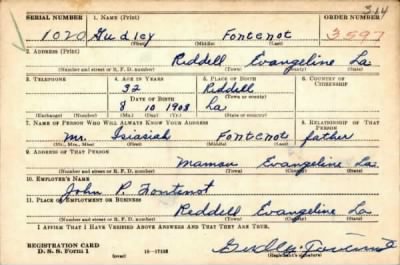 SERIAL NUMBER 1. NAME (Print) ORDER NUMBER
364
1020 Gudley Fontenot 3597
(First) (Middle) (Last)
2. ADDRESS (Print)
Reddell Evangeline La
(Number and street or R. F. D. number) (Town) (County) (State)
3. TELEPHONE 4. AGE IN YEARS 5. PLACE OF BIRTH 6. COUNTRY OF CITIZENSHIP
32 Reddell
DATE OF BIRTH (Town or county)
8 10 1908 La
(Exchange) (Number) (Mo.) (Day) (Yr.) (State or country)
7. NAME OF PERSON WHO WILL ALWAYS KNOW YOUR ADDRESS 8. RELATIONSHIP OF THAT PERSON
Mr. Isiasiah Fontenot father
(Mr., Mrs., Miss) (First) (Middle) (Last)
9. ADDRESS OF THAT PERSON
Mamou Evangeline La
(Number and street or R. F. D. number) (Town) (County) (State)
10. EMPLOYER'S NAME
John P. Fontenot
11. PLACE OF EMPLOYMENT OR BUSINESS
Reddell Evangeline La
(Number and street or R. F. D. number) (Town) (County) (State)
I AFFIRM THAT I HAVE VERIFIED ABOVE ANSWERS AND THAT THEY ARE TRUE.
REGISTRATION CARD
D. S. S. Form 1 (over) 16—17105
(Registrant's signature)